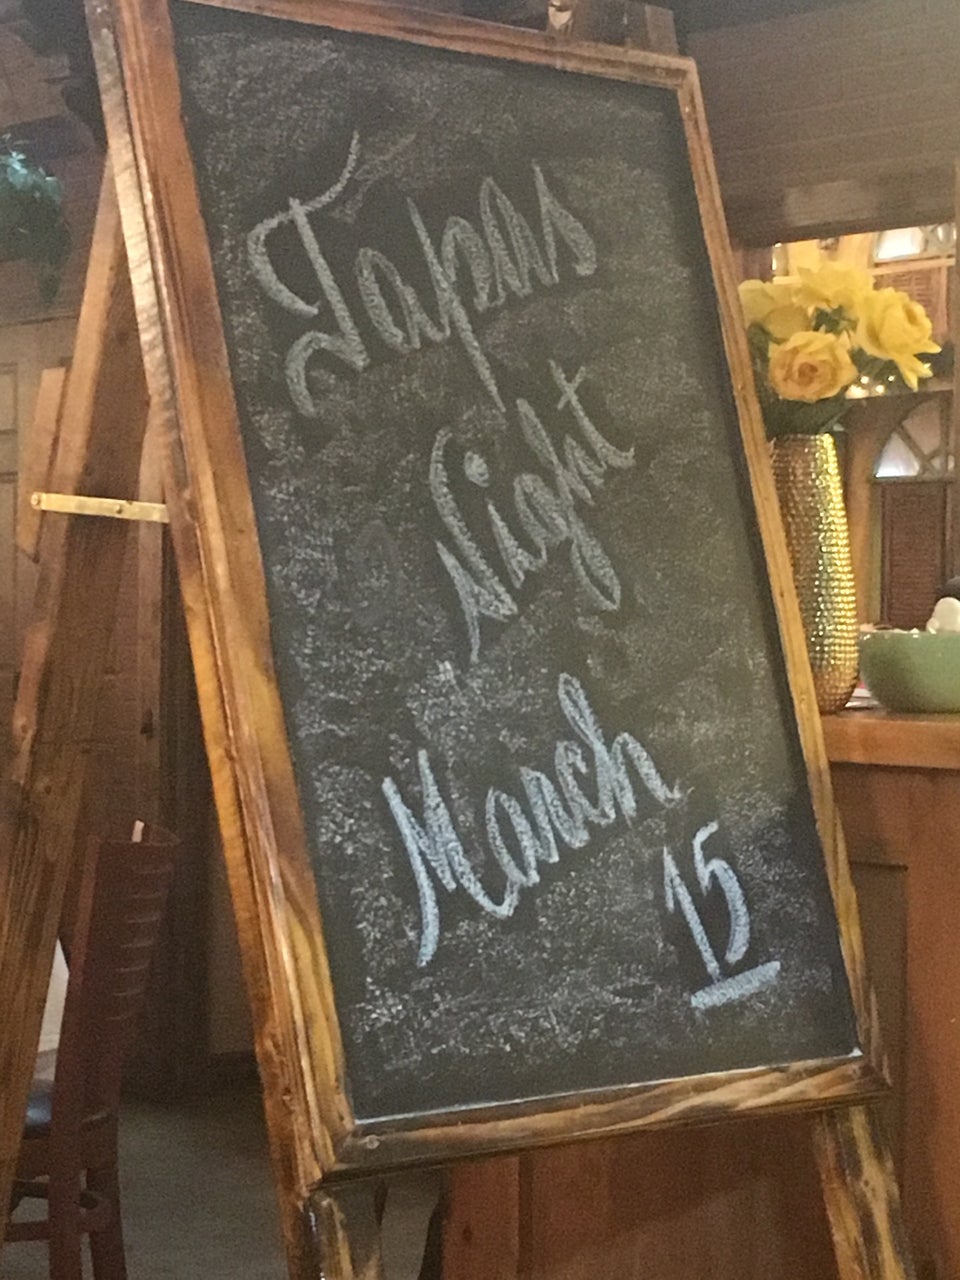 Tapas
Night
March
15